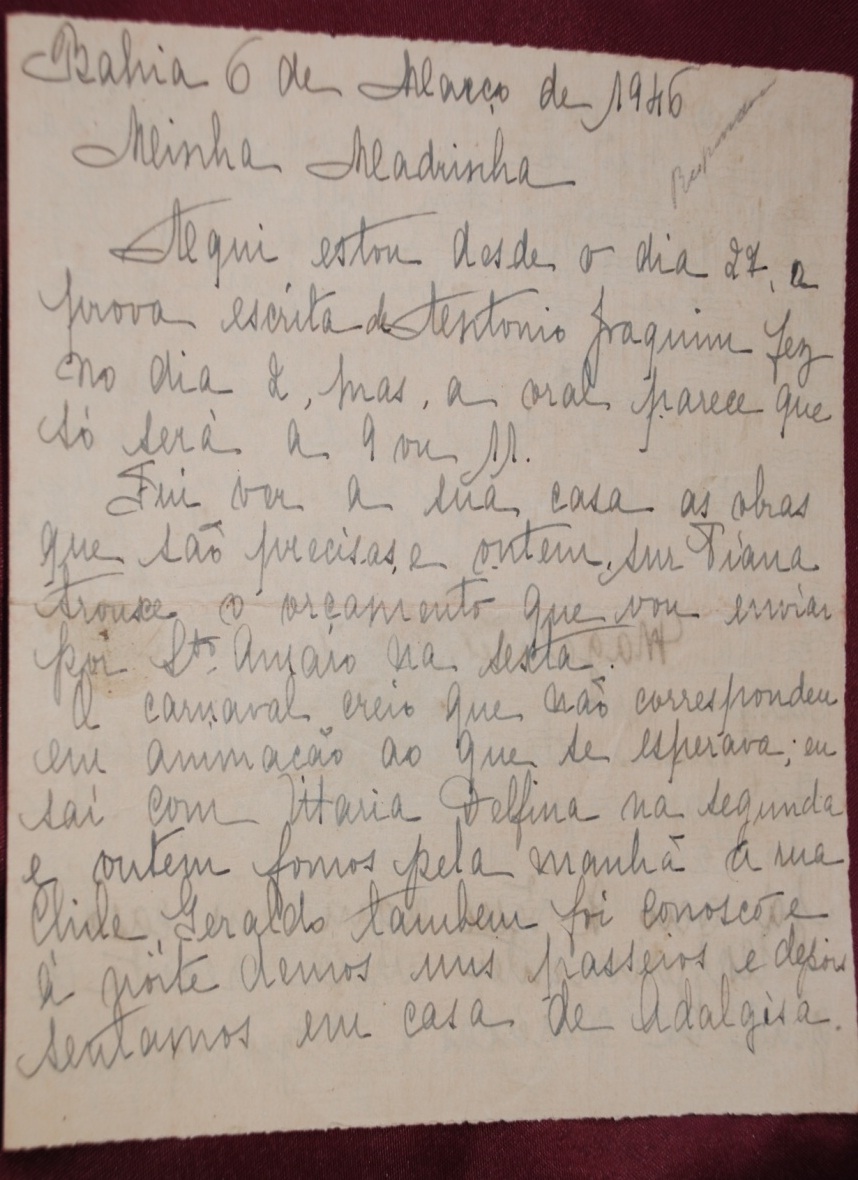 Bahia 6 de Março de 1946
Minha Madrinha
Aqui estou desde o dia 27, a
prova escrita de Antonio Joaquim fez
no dia 2, mas, a oral parece que
só será a 9 ou 11.
Fui ver a sua casa as obras
que são precisas, e ontem, snr Viana
trouxe o orçamento que vou enviar
por Sto. Amaro na sexta.
O carnaval creio que não correspondeu
em animação ao que se esperava; eu
saí com Maria Delfina na segunda
e ontem fomos pela manhã à rua
Chile, Geraldo tambem foi conosco e
à noite demos uns passeios e depois
sentamos em casa de Adalgisa.